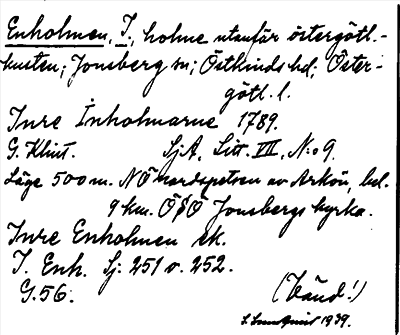 Enholmen, I., holme utanför östergötl.-
kusten; Jonsberg sn; Östkinds hd; Öster-
götl. l.
Inre Inholmarne 1789.
G. Klint. SjA, Litt. VII, N:o 9.
Läge 500 m. NÖ nordspetsen av Arkön, bel.
9 km. ÖSÖ Jonsbergs kyrka.
Inre Enholmen ek.
I. Enh. Sj: 251 o. 252.
G. 56. (Vänd!)
1939.